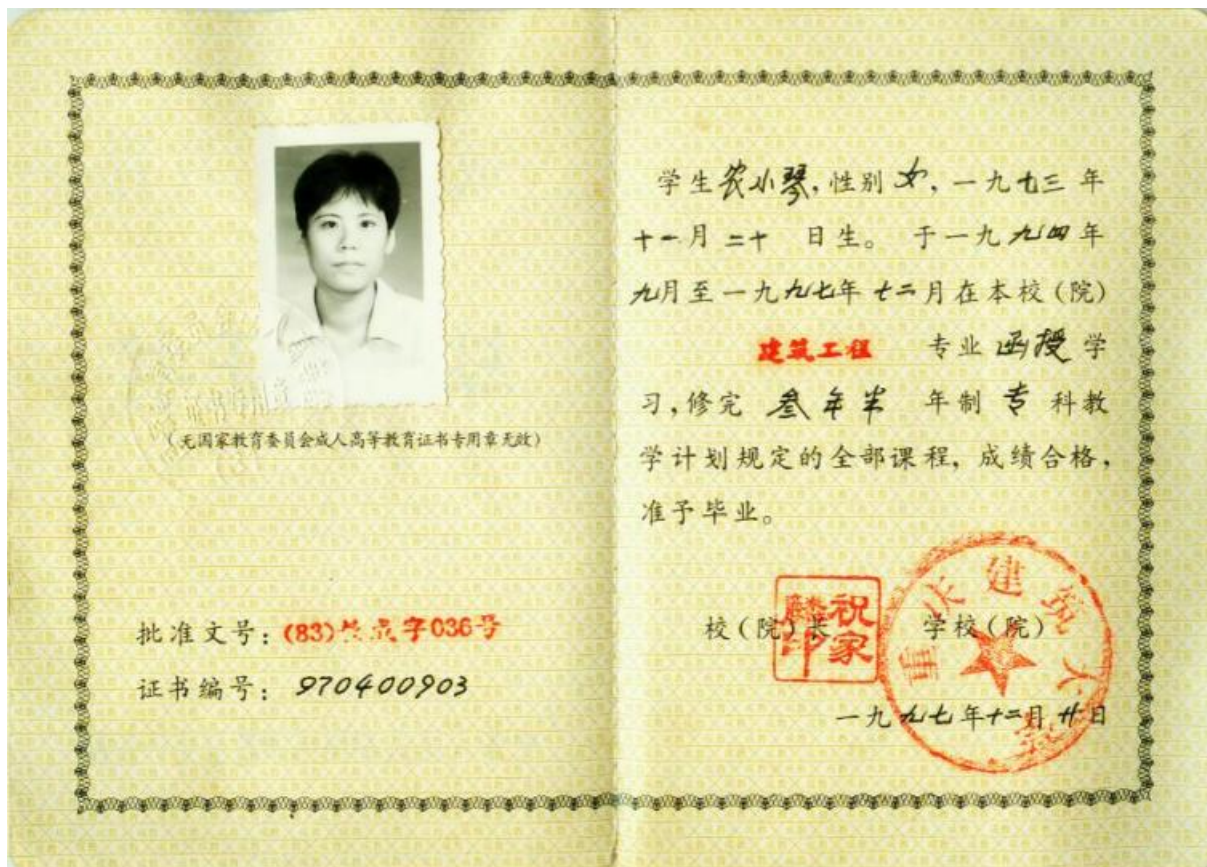 (无国家教育委员会成人高等教育证书专用章无效)
批准文号：(83)教成字036号
证书编号：970400903
学生农小琴，性别女，一九七三年
十一月二十 日生。 于一九九四年
九月至一九九七年十二月在本校(院)
建筑工程 专业 函授 学
习，修完 叁年半 年制 专 科教
学计划规定的全部课程，成绩合格，
准予毕业。
校(院)长 学校(院)
祝家麟印
重庆建筑大学
一九九七年十二月廿日